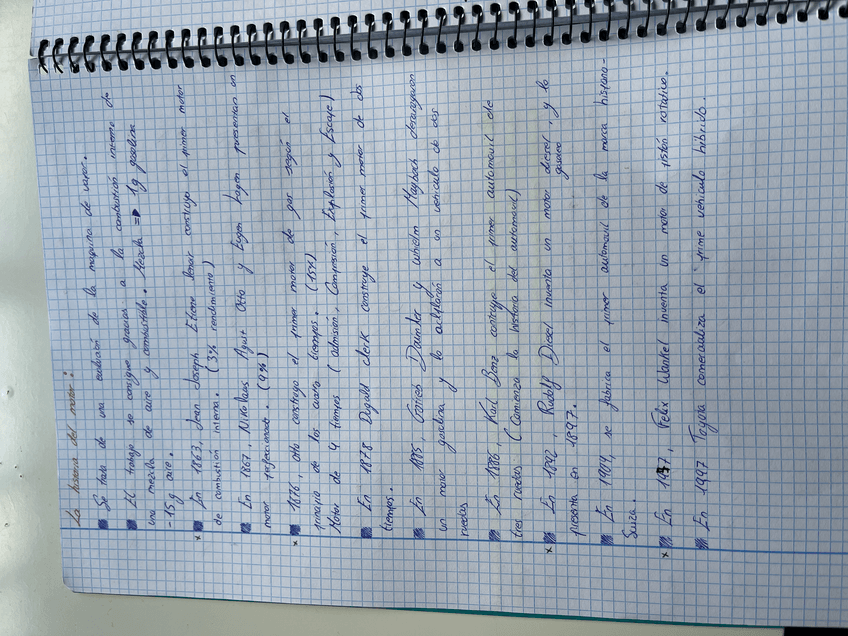 La historia del motor:
Se trata de una evolución de la maquina de vapor.
El trabajo se consigue gracias a la combustión interna de
una mezcla de aire y combustible. Mezcla => 1g gasolina
- 15 g aire.
x En 1863, Jean Joseph Etiene lenoir construyo el primer motor
de combustión interna. (3% rendimiento)
En 1867, Nikolaus Agust Otto y Eugen Lagen presentan un
motor perfeccionado. (9%)
x 1876, otto construyo el primer motor de gas según el
principio de los cuatro tiempos. (15%)
Motor de 4 tiempos (admisión, Compresión, Explosión y Escape)
En 1878 Dugald clerk construye el primer motor de dos
tiempos.
En 1885, Gotlieb Daimler y whielm Maybach
un motor gasolina y lo a un vehiculo de dos
ruedas
En 1886, Karl Benz contruye el primer automovil de
tres ruedas. (Comienza la historia del automovil)
x En 1892, Rudolf Diesel inventa un motor diesel, y lo
gasoleo
presenta en 1897.
En 1904, se fabrica el primer automovil de la marca hispano-
Suiza.
x En 1957, Felix Wankel inventa un motor de pistón rotativo.
En 1997 Toyota comercializa el prime vehiculo hibrido.